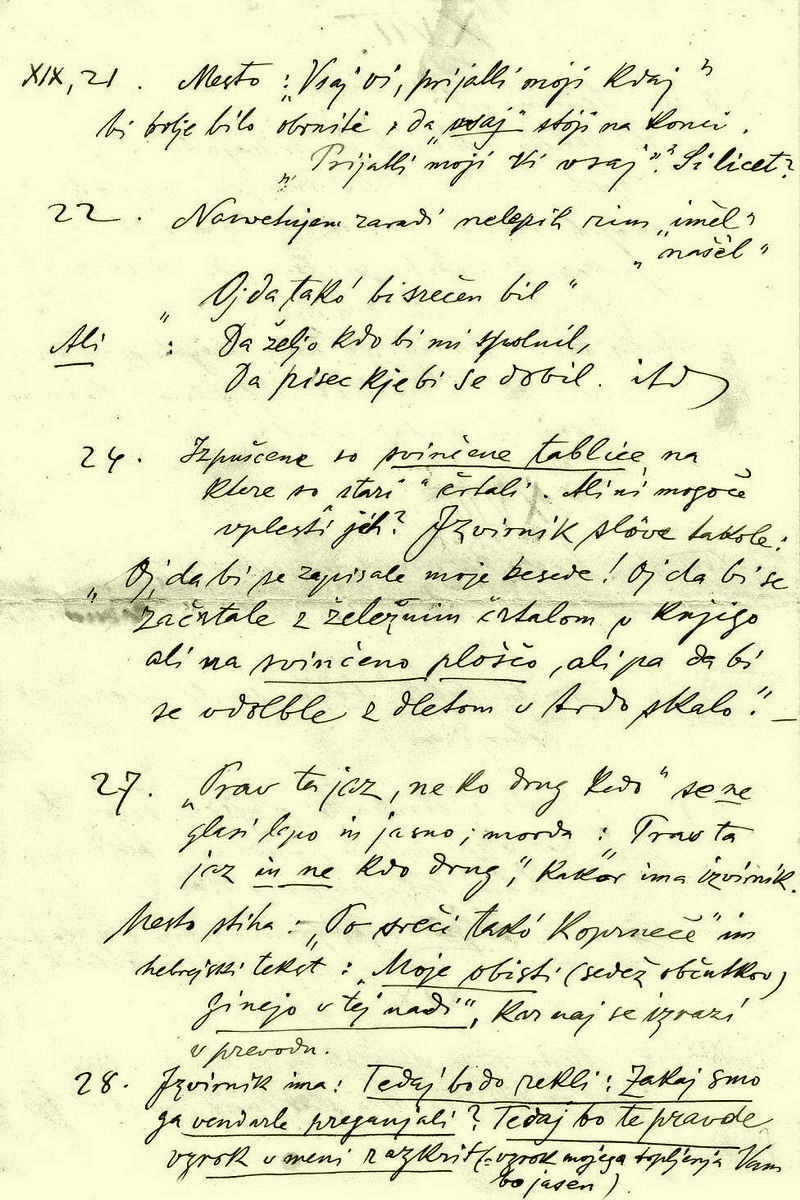 XIX, 21. Mesto: „Vsaj vi, prijatli moji kdaj"
bi bolje bilo obrniti, da „vsaj" stoji na konci.
„Prijatli moji vi vsaj"? Si licet?
22. Nasvetujem zaradi nelepih rim „imèl"
„našèl"
„Oj da takó bi srečen bil"
Ali: Da željo kdo bi mi spolnil,
Da pisec kje bi se dobil. itd
24. Izpuščene so svinčene tablice na
ktere so stari črtali. Ali ni mogoče
vplesti jih? Izvirnik slove takole:
„Oj, da bi se zapisale moje besede! Oj da bi se
začrtale z železnim črtalom v knjigo
ali na svinčeno ploščo, ali pa da bi
se vdolble z dletom v trdo skalo". —
27. „Prav ta jaz, ne ko drug kedo" se ne
glasi lepo in jasno; morda: „Prav ta
jaz in ne kdo drug", kakor ima izvirnik.
Mesto stiha: „Po sreči takó koprneče" im
hebrejski tekst: „Moje obisti (sedež občutkov)
ginejo v tej nadi", kar naj se izrazi
v prevodu.
28. Izvirnik ima: Tedaj bodo rekli: Zakaj smo
ga vendarle preganjali? Tedaj bo te pravde
vzrok v meni razkrit (: vzrok mojega trpljenja Vam
bo jasen).